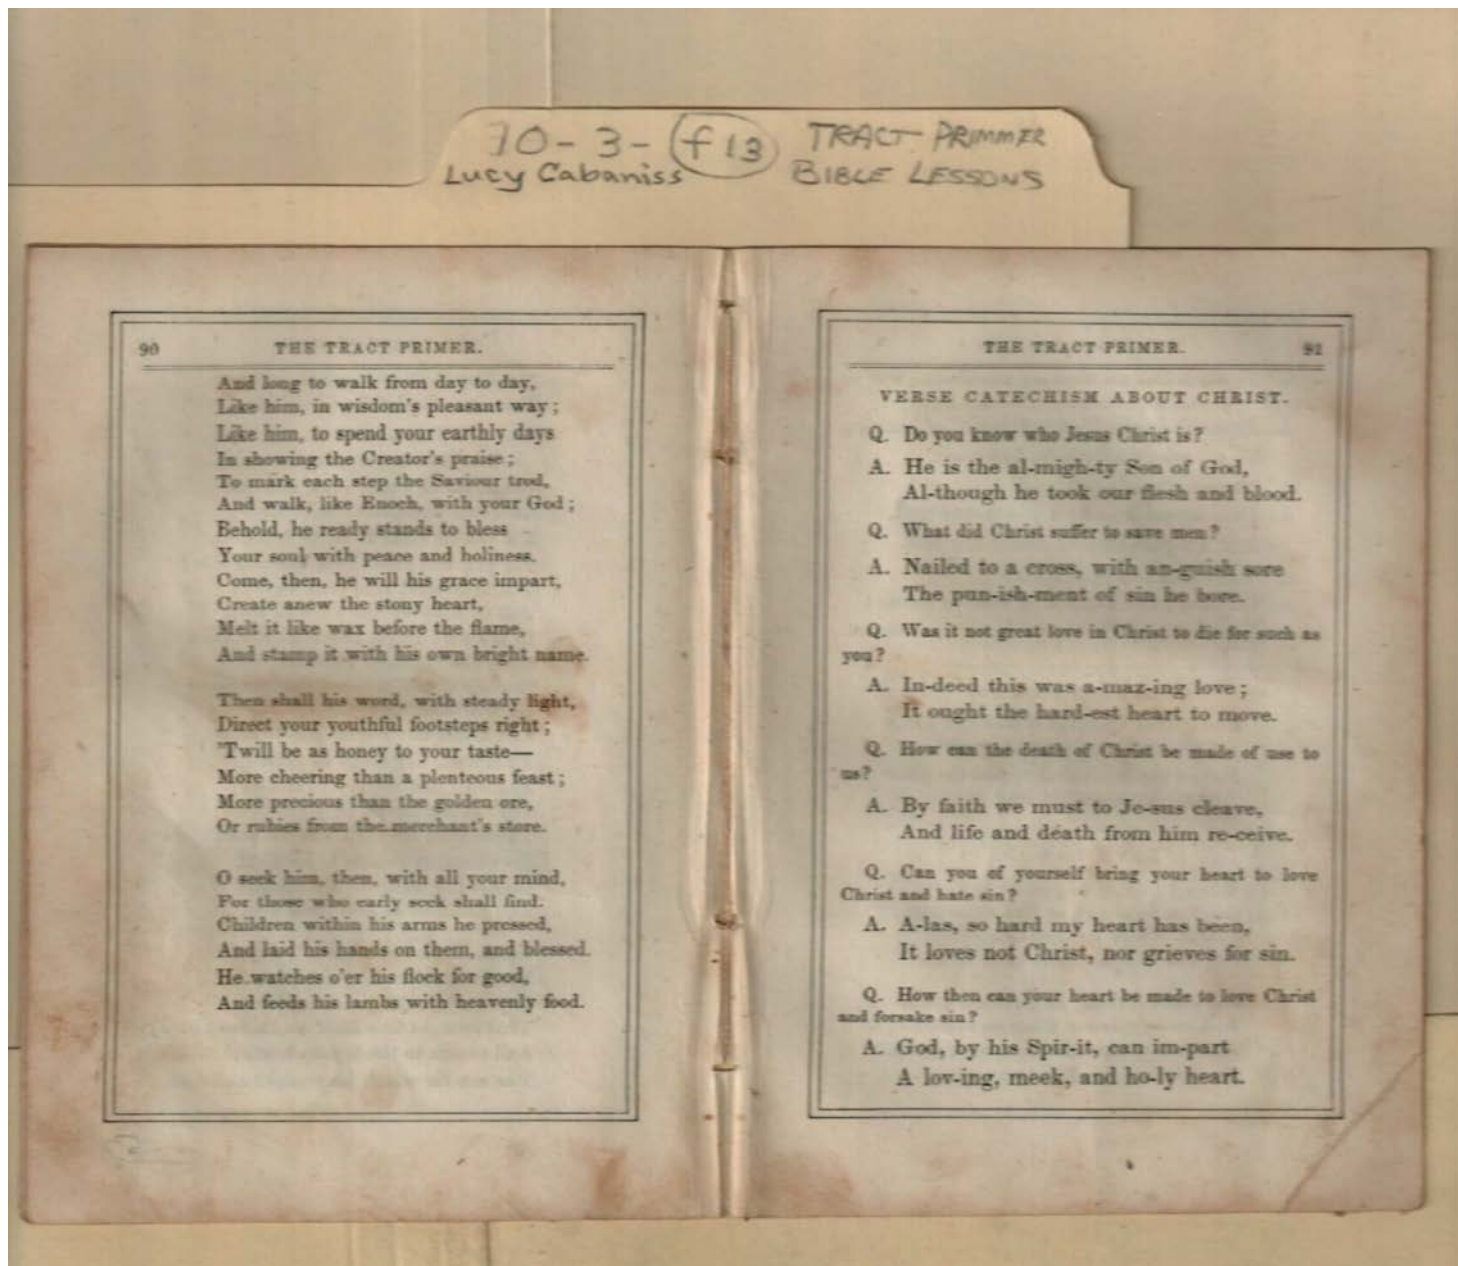 70-3-f13 TRACT PRIMMER
Lucy Cabaniss BIBLE LESSONS
90 THE TRACT PRIMER.
And long to walk from day to day,
Like him, in wisdom's pleasant way;
Like him, to spend your earthly days
In showing the Creator's praise;
To mark each step the Saviour trod,
And walk, like Enoch, with your God;
Behold, he ready stands to bless
Your soul with peace and holiness.
Come, then, he will his grace impart,
Create anew the stony heart,
Melt it like wax before the flame,
And stamp it with his own bright name.
Then shall his word, with steady light,
Direct your youthful footsteps right;
'Twill be as honey to your taste—
More cheering than a plenteous feast;
More precious than the golden ore,
Or rubies from the merchant's store.
O seek him, then, with all your mind,
For those who early seek shall find.
Children within his arms he pressed,
And laid his hands on them, and blessed.
He watches o'er his flock for good,
And feeds his lambs with heavenly food.
THE TRACT PRIMER. 91
VERSE CATECHISM ABOUT CHRIST.
Q. Do you know who Jesus Christ is?
A. He is the al-migh-ty Son of God,
Al-though he took our flesh and blood.
Q. What did Christ suffer to save men?
A. Nailed to a cross, with an-guish sore
The pun-ish-ment of sin he bore.
Q. Was it not great love in Christ to die for such as
you?
A. In-deed this was a-maz-ing love;
It ought the hard-est heart to move.
Q. How can the death of Christ be made of use to
us?
A. By faith we must to Je-sus cleave,
And life and death from him re-ceive.
Q. Can you of yourself bring your heart to love
Christ and hate sin?
A. A-las, so hard my heart has been,
It loves not Christ, nor grieves for sin.
Q. How then can your heart be made to love Christ
and forsake sin?
A. God, by his Spir-it, can im-part
A lov-ing, meek, and ho-ly heart.